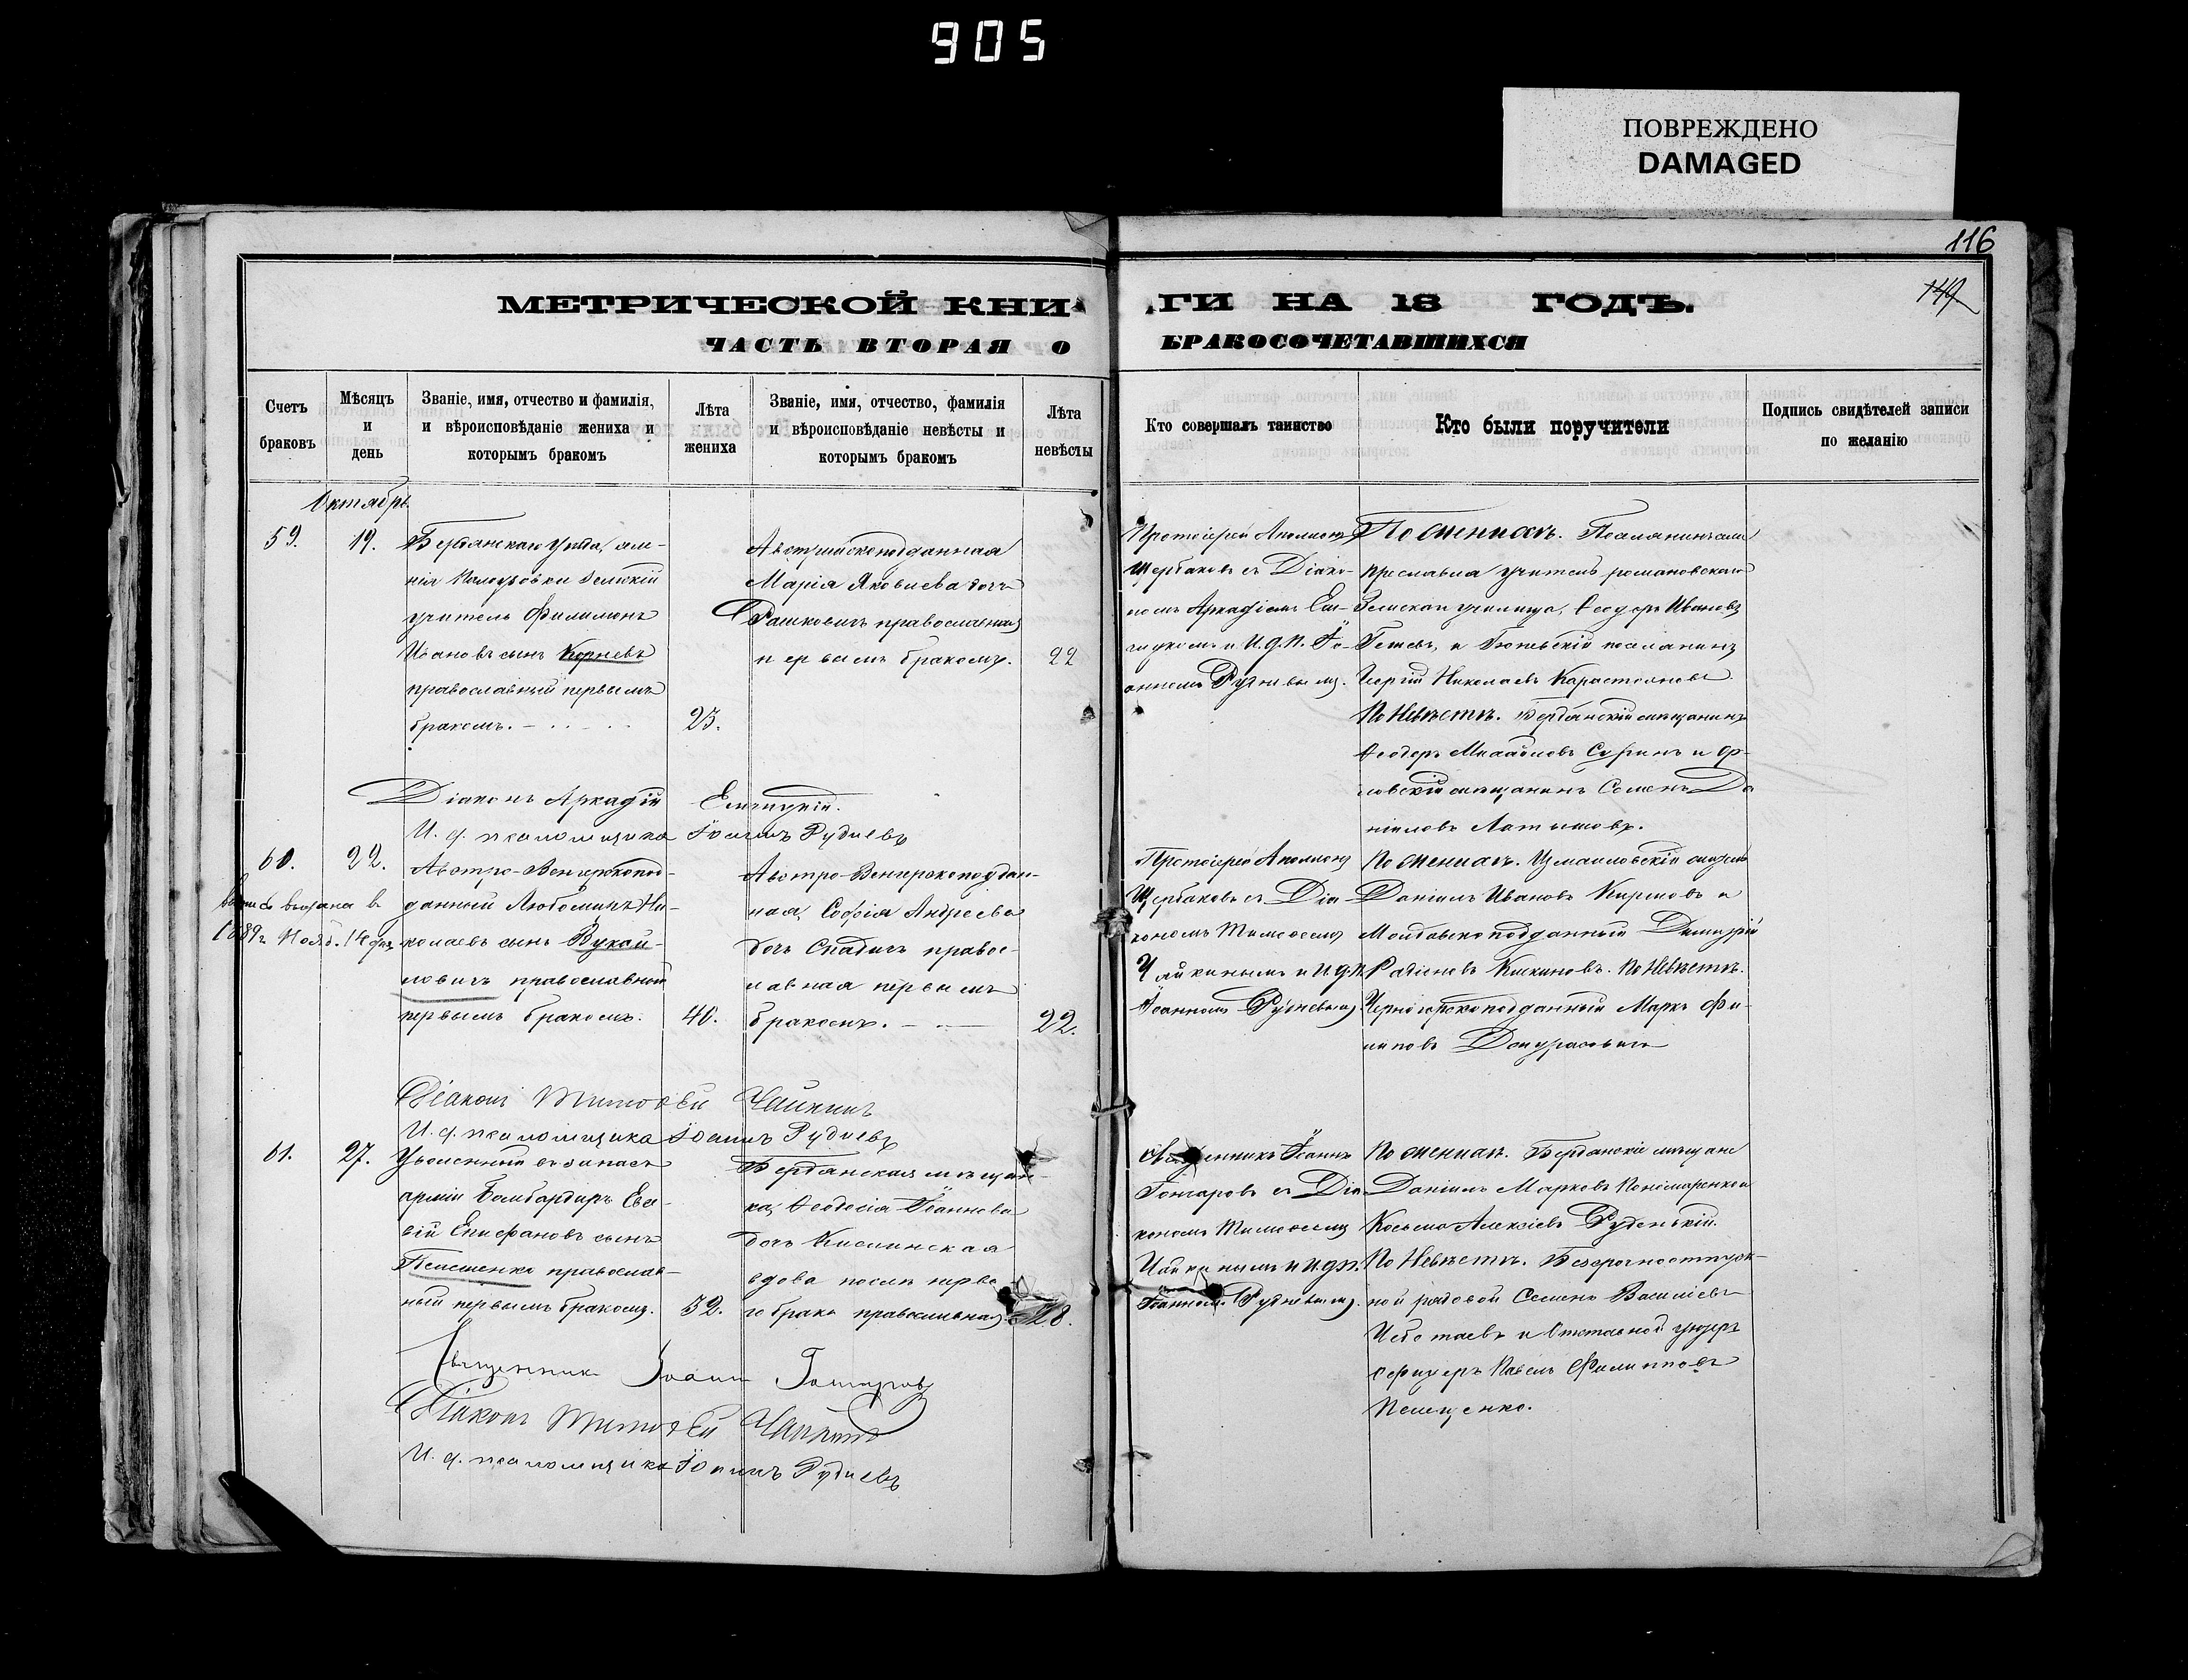 905
ПОВРЕЖДЕНО
DAMAGED
116
149
МЕТРИЧЕСКОЙ КНИ
ГИ НА 18 ГОДЪ.
ЧАСТЬ ВТОРАЯ О
БРАКОСОЧЕТАВШИХСЯ
Счетъ браковъ
Мѣсяцъ и день
Званіе, имя, отчество и фамилія,
и вѣроисповѣданіе жениха и
которымъ бракомъ
Лѣта жениха
Званіе, имя, отчество, фамилія
и вѣроисповѣданіе невѣсты и
которымъ бракомъ
Лѣта невѣсты
Кто совершалъ таинство
Кто были поручители
Подпись свидѣтелей записи
по желанію
Октябрь.
59.
19.
Бердянскаго уѣзда,
земскій
учитель Филимонъ
Ивановъ сынъ Корневъ
православный первымъ
бракомъ.
23.
Австрійскоподданная
Марія Яковлева дочь
Рашковичъ православная
первымъ бракомъ.
22
Протоіерей Аполлонъ
Щербаковъ съ Діако-
номъ Аркадіемъ
и И.д.п. Іо-
анномъ Рудневымъ.
По женихѣ. Поселянинъ
учитель романовскаго
Земскаго училища, Ѳеодоръ Ивановъ
и поселянинъ
Георгій Николаевъ Карастояновъ
По Невѣстѣ. Бердянскій мѣщанинъ
Ѳеодоръ Михайловъ и Ор-
ловскій мѣщанинъ Семенъ Да
ніиловъ Латышовъ.
Діаконъ Аркадій
И. д. псаломщика Іоаннъ Рудневъ
60.
22.
Австро-Венгерскопод-
данный Любомиръ Ни-
колаевъ сынъ Вукай-
ловичъ православный
первымъ бракомъ.
40.
выдана в
1889г. Нояб. 14 дня
Австро-Венгерскоподдан-
ная, Софія Андреева
дочь Спадичъ правос-
лавная первымъ
бракомъ.
22.
Протоіерей Аполлонъ
Щербаковъ съ Діа
кономъ Тимоѳеемъ
Чайкинымъ и И.д.п.
Іоанномъ Рудневымъ
По женихѣ. Измаиловскій
Даніилъ Ивановъ Кирповъ и
Молдавскоподданный Димитрій
Кикиновъ. По Невѣстѣ.
Черногорскоподданный Маркъ Фи-
липовъ
Діаконъ Тимоѳей Чайкинъ
И. д. псаломщика Іоаннъ Рудневъ
61.
27.
Уволенный въ запасъ
арміи Бомбардиръ Евс-
вій Епифановъ сынъ
православ-
ный первымъ бракомъ.
32.
Бердянская мѣщан-
ка, Ѳеодосія Іоаннова
дочь Кислинская
вдова послѣ перва-
го брака православная.
28.
Священникъ Іоаннъ
Гончаровъ съ Діа
кономъ Тимоѳеемъ
Чайкинымъ и И.д.п.
Іоанномъ Рудневымъ.
По женихѣ. Бердянскіе мѣщане
Даніилъ Марковъ Пономаренко и
Косьма Алексіевъ Руденькій.
По Невѣстѣ. Безсрочноотпуск-
ной рядовой Семенъ Василіевъ
Чеботаевъ и Отставной унтеръ
офицеръ Павелъ Филипповъ
Пелещенко.
Священникъ Іоаннъ Гончаровъ
Діаконъ Тимоѳей Чайкинъ
И. д. псаломщика Іоаннъ Рудневъ